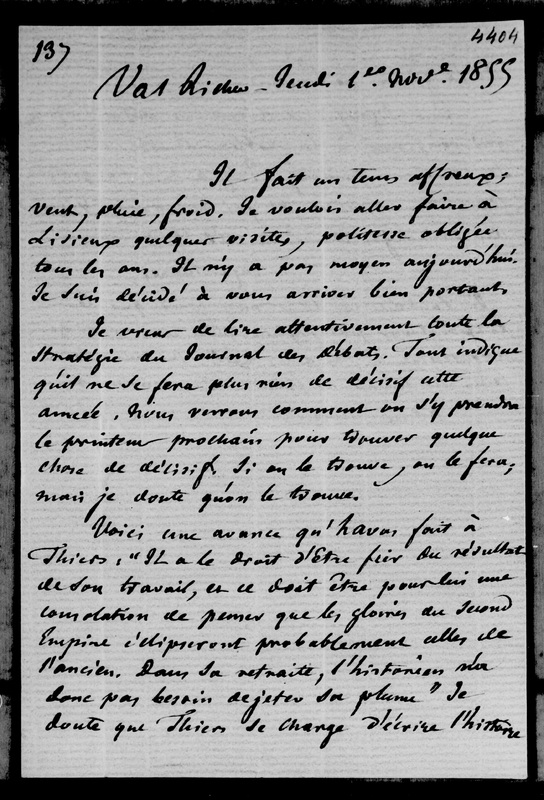 137
4404
Val Richer - Jeudi 1er Nov.e 1855
Il fait un tems affreux;
vent, pluie, froid. Je voulois aller faire à
Lisieux quelques visites, politesse obligée
tous les ans. Il n'y a pas moyen aujourd'hui.
Je suis décidé à vous arriver bien portant.
Je viens de lire attentivement toute la
stratégie du Journal des Débats. Tout indique
qu'il ne se fera plus rien de décisif cette
année. Nous verrons comment on s'y prendra
le printems prochain pour trouver quelque
chose de décisif. Si on le trouve, on le fera;
mais je doute qu'on le trouve.
Voici une avance qu'havas fait à
Thiers: "Il a le droit d'être fier du résultat
de son travail, et ce doit être pour lui une
consolation de penser que les gloires du second
Empire éclipseront probablement celles de
l'ancien. Dans sa retraite, l'historien n'a
donc pas besoin de jeter sa plume" Je
doute que Thiers se charge d'écrire l'histoire